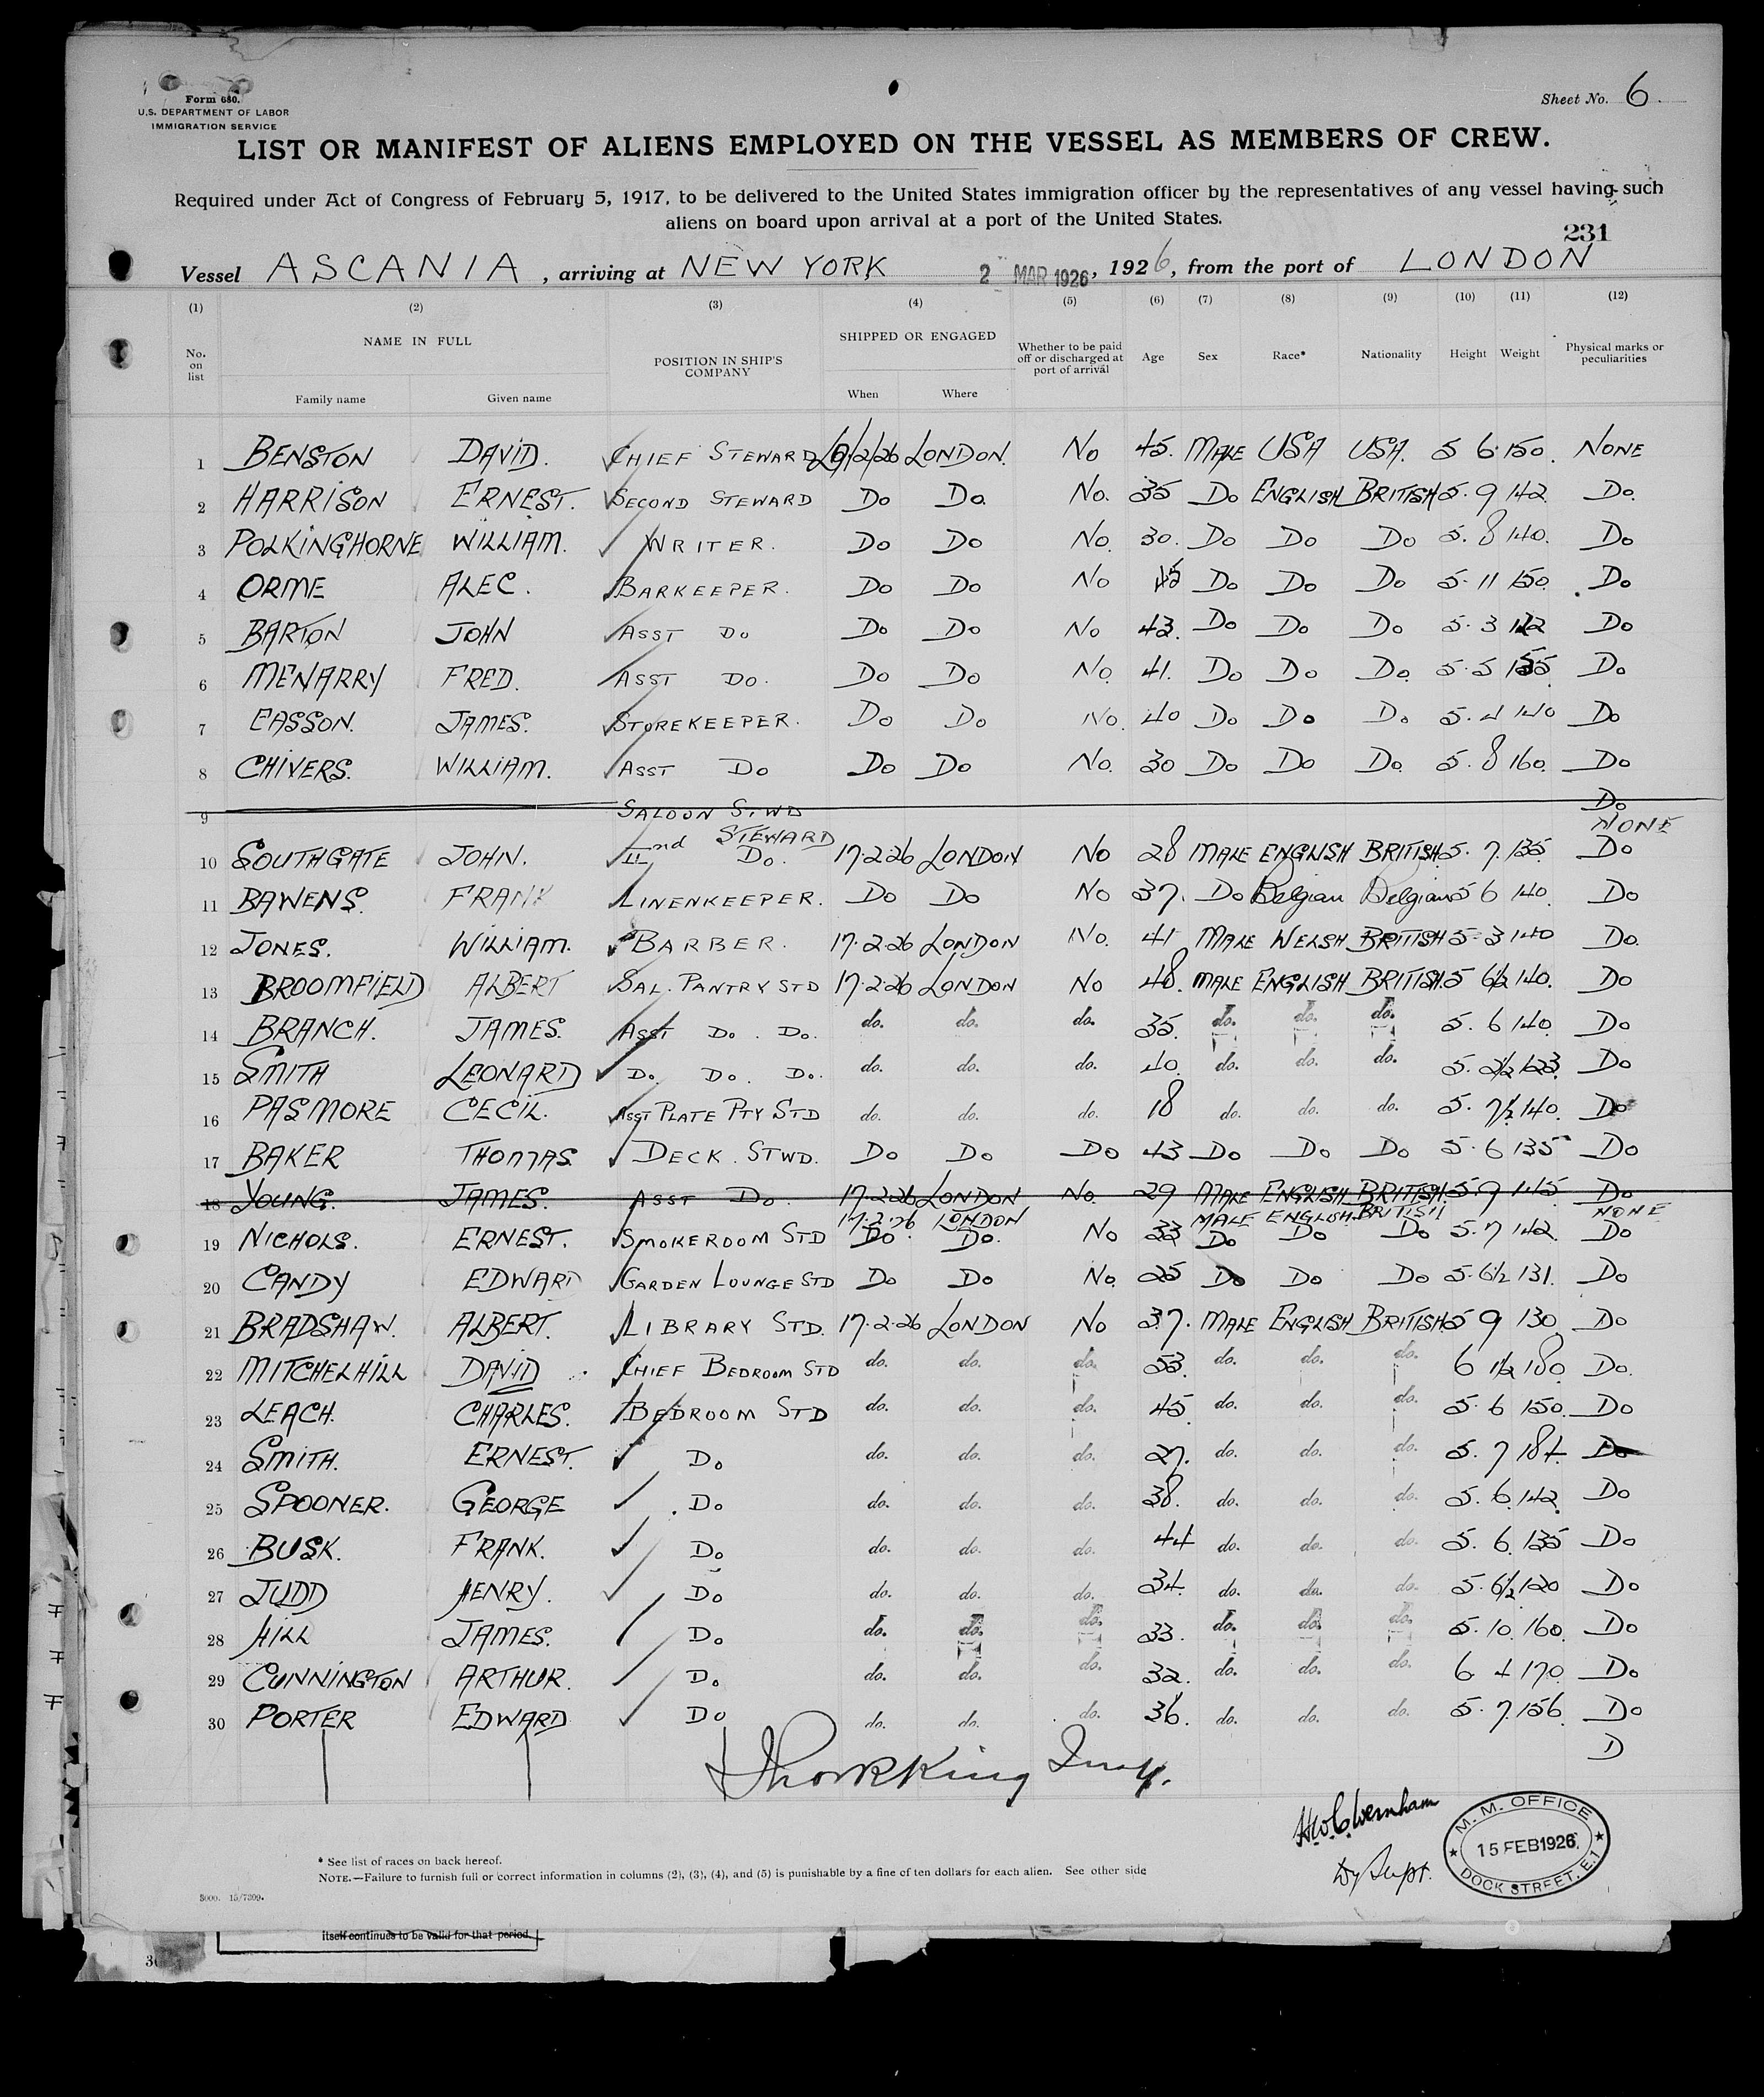 Form 680.
U.S. DEPARTMENT OF LABOR
IMMIGRATION SERVICE
Sheet No. 6.
LIST OR MANIFEST OF ALIENS EMPLOYED ON THE VESSEL AS MEMBERS OF CREW.
Required under Act of Congress of February 5, 1917, to be delivered to the United States immigration officer by the representatives of any vessel having such
aliens on board upon arrival at a port of the United States.
231
Vessel ASCANIA, arriving at NEW YORK 2 MAR 1926, 1926, from the port of LONDON
(1) (2) (3) (4) (5) (6) (7) (8) (9) (10) (11) (12)
No. on list NAME IN FULL POSITION IN SHIP'S COMPANY SHIPPED OR ENGAGED Whether to be paid off or discharged at port of arrival Age Sex Race* Nationality Height Weight Physical marks or peculiarities
Family name Given name When Where
1 BENSTON DAVID. CHIEF STEWARD /2/26 LONDON. No 45. MALE USA USA. 5 6 150. NONE
2 HARRISON ERNEST. SECOND STEWARD Do Do. No. 35 Do ENGLISH BRITISH 5.9 142 Do.
3 POLKINGHORNE WILLIAM. WRITER. Do Do No. 30. Do Do Do 5.8 140. Do
4 ORME ALEC. BARKEEPER. Do Do No 45 Do Do Do 5.11 150. Do
5 BARTON JOHN ASST Do Do Do No 43. Do Do Do 5.3 Do
6 MENARRY FRED. ASST Do. Do Do No. 41. Do Do Do. 5.5 155 Do
7 EASSON. JAMES. STOREKEEPER. Do Do No. 40 Do Do Do 5.4 140 Do
8 CHIVERS. WILLIAM. ASST Do Do Do No. 30 Do Do Do. 5.8 160. Do
9 SALOON STWD Do
STEWARD NONE
10 SOUTHGATE JOHN. IInd Do. 17.2.26 LONDON No 28 MALE ENGLISH BRITISH 5.7.135 Do
11 BAWENS. FRANK LINENKEEPER. Do Do No 37. Do Belgian Belgian 5 6 140. Do
12 JONES. WILLIAM. BARBER. 17.2.26 LONDON No. 41 MALE WELSH BRITISH 5.3 140 Do.
13 BROOMFIELD ALBERT SAL. PANTRY STD 17.2.26 LONDON No 48. MALE ENGLISH BRITISH 5 6½ 140. Do
14 BRANCH. JAMES. ASST Do. Do. do. do. do. 35. do. do. do. 5.6 140. Do
15 SMITH LEONARD Do. Do. Do. do. do. do. 40. do. do. do. 5.2½ 123. Do
16 PASMORE CECIL. ASST PLATE PTY STD do. do. do. 18 do. do. do. 5.7½ 140. Do
17 BAKER THOMAS DECK. STWD. Do Do Do 43 Do Do Do 5.6 135 Do
18 YOUNG. JAMES. ASST Do. 17.2.26 LONDON No. 29 MALE ENGLISH BRITISH. 5.9 145 Do
17.2.26 LONDON MALE ENGLISH BRITISH NONE
19 NICHOLS. ERNEST. SMOKEROOM STD Do Do. No 33 Do Do Do 5.7 142. Do
20 CANDY EDWARD GARDEN LOUNGE STD Do Do No. 25 Do Do Do 5.6½ 131. Do
21 BRADSHAW. ALBERT. LIBRARY STD. 17.2.26 LONDON No 37. MALE ENGLISH BRITISH 5 9 130 Do
22 MITCHELHILL DAVID CHIEF BEDROOM STD do. do. do. 53. do. do. do. 6 1½ 180. Do.
23 LEACH. CHARLES. BEDROOM STD do. do. do. 45 do. do. do. 5.6 150. Do
24 SMITH. ERNEST. Do do. do. do. 27. do. do. do. 5.7 184. Do
25 SPOONER. GEORGE Do do. do. do. 38. do. do. do. 5.6.142. Do
26 BUSK. FRANK. Do do. do. do. 44 do. do. do. 5.6.135 Do
27 JUDD HENRY. Do do. do. do. 34. do. do. do. 5.6½ 120 Do
28 HILL JAMES. Do do. do. do. 33. do. do. do. 5.10.160. Do
29 CUNNINGTON ARTHUR. Do do. do. do. 32. do. do. do. 6 4 170. Do
30 PORTER EDWARD Do do. do. do. 36. do. do. do. 5.7.156 Do
D
M. M. OFFICE
15 FEB 1926
DOCK STREET, E.1
Dy Supt.
* See list of races on back hereof.
NOTE.—Failure to furnish full or correct information in columns (2), (3), (4), and (5) is punishable by a fine of ten dollars for each alien. See other side
5000. 15/7309.
itself continues to be valid for that period.